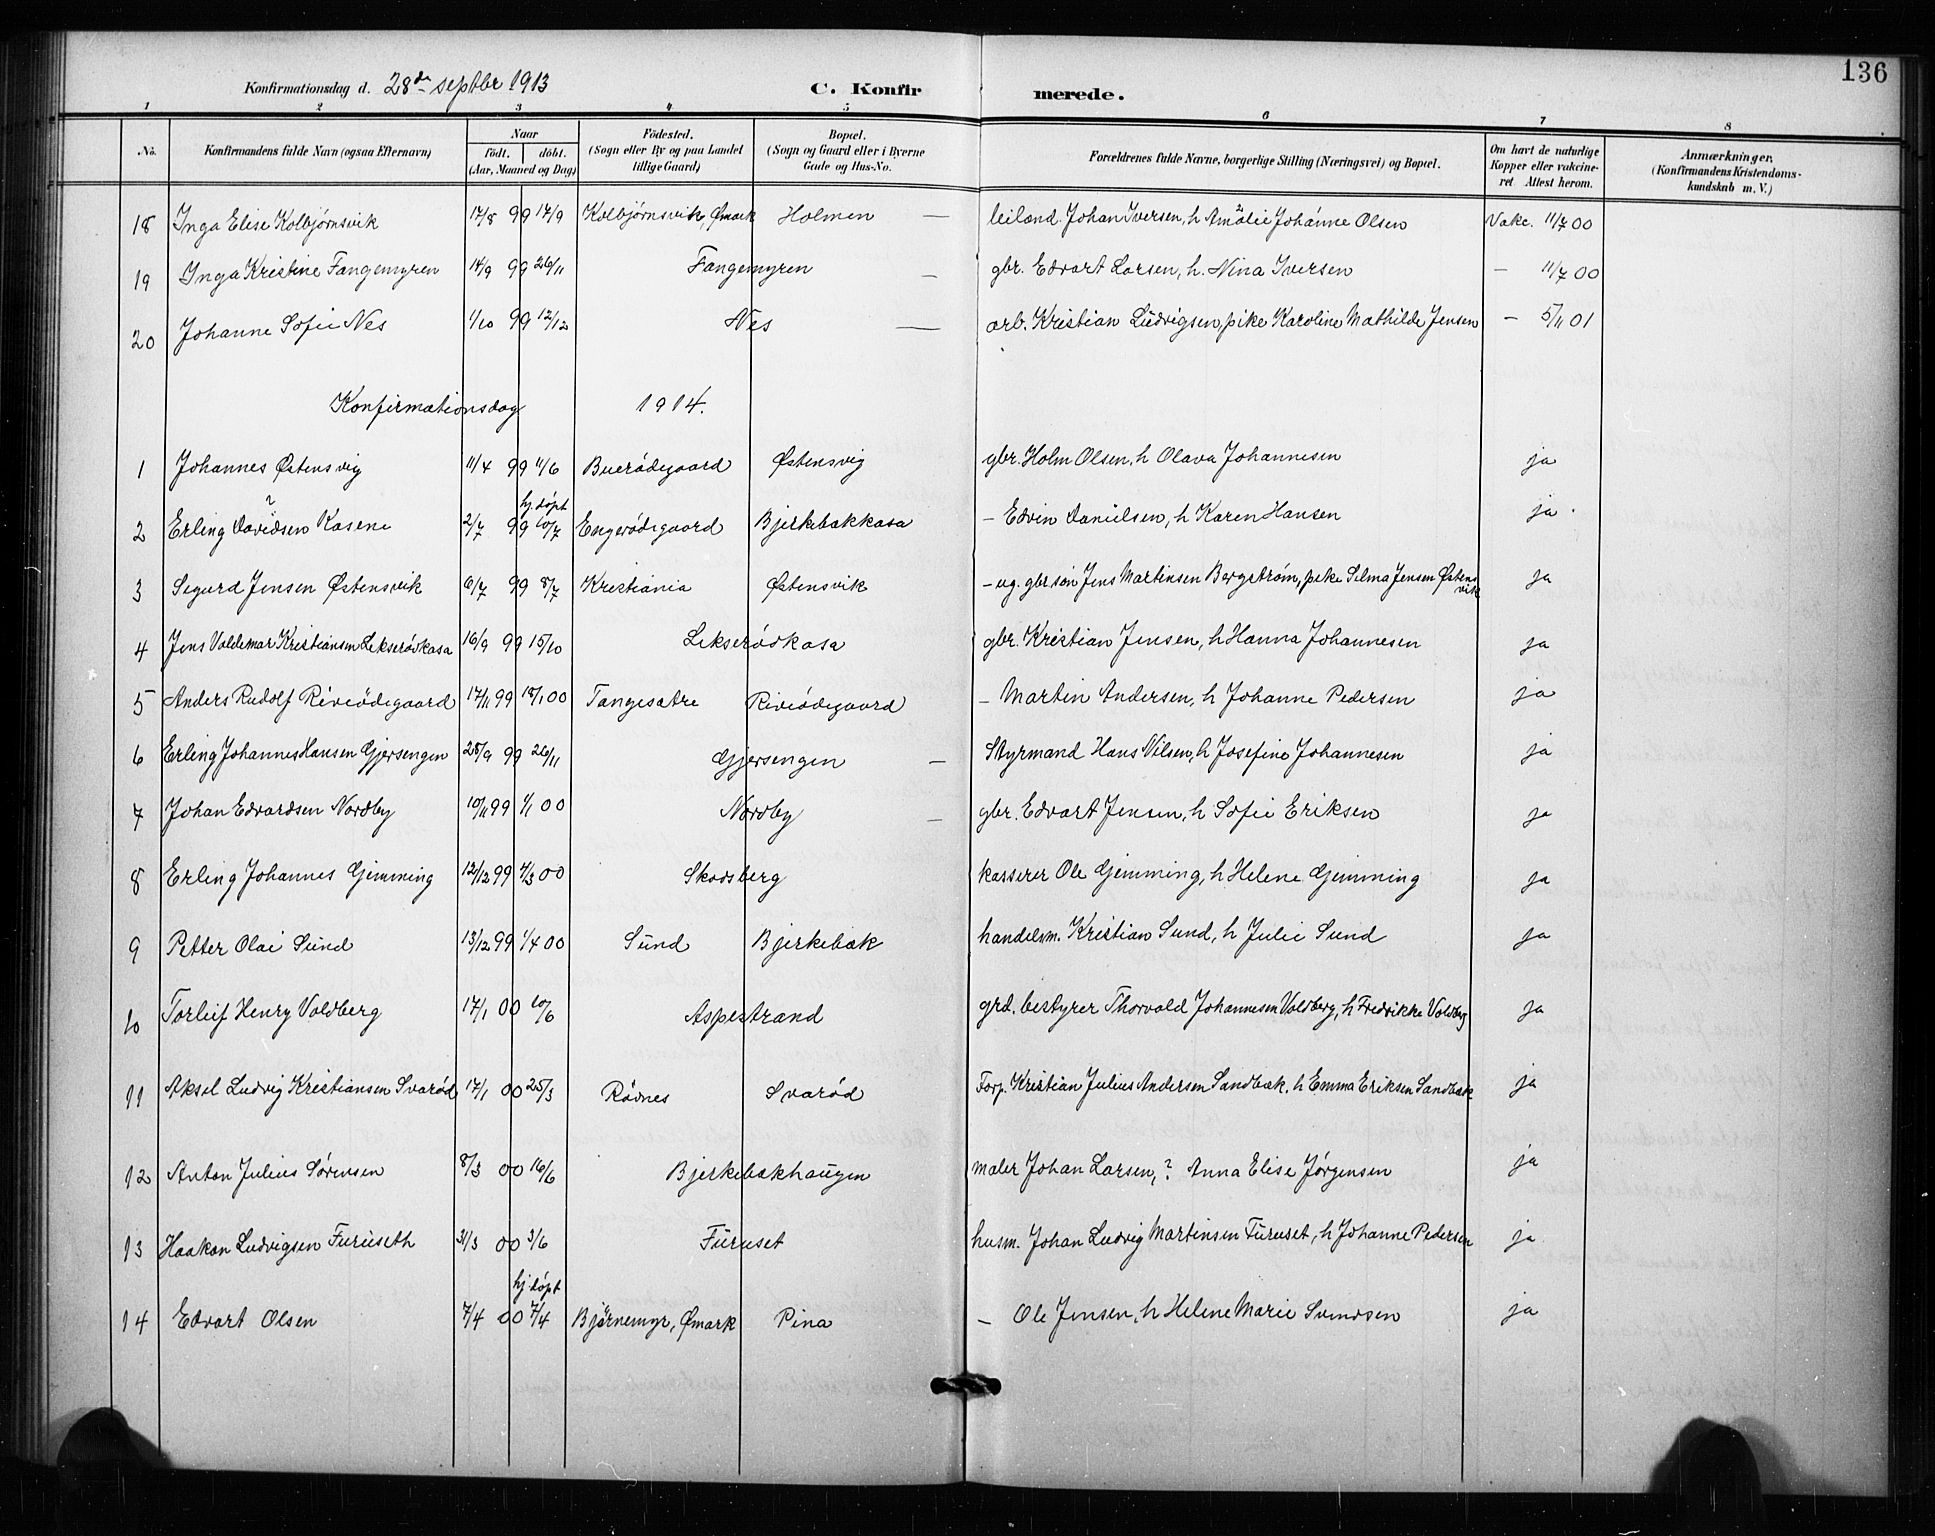 136
Konfirmationsdag d. 28de septbr 1913 C. Konfirmerede.
1 2 3 4 5 6 7 8
No. Konfirmandens fulde Navn (ogsaa Efternavn) Naar født. døbt. (Aar, Maaned og Dag) Fødested. (Sogn eller By og paa Landet tillige Gaard) Bopæl. (Sogn og Gaard eller i Byerne Gade og Hus-No. Forældrenes fulde Navne, borgerlige Stilling (Næringsvei) og Bopæl. Om havt de naturlige Kopper eller vakcineret Attest herom. Anmærkninger, (Konfirmandens Kristendomskundskab m. V.)
18 Inga Elise Kolbjørnsvik 17/8 99 17/9 Kolbjørnsvik, Ømark Holmen — leiland. Johan Iversen, h Amalie Johanne Olsen Vakc. 11/7 00
19 Inga Kristine Fangemyren 14/9 99 26/11 Fangemyren — gbr. Edvart Larsen, h. Nina Iversen — 11/7 00
20 Johanne Sofie Nes 1/10 99 12/12 Nes — arb. Kristian Ludvigsen, pike Karoline Mathilde Jensen — 5/11 01
Konfirmationsdag 1914.
1 Johannes Østensvig 11/4 99 11/6 Buerødegaard Østensvig gbr. Holm Olsen, h Olava Johannesen ja
2 Erling Davidsen ? Kasene 2/7 99 hj. døpt 10/7 Engerødegaard Bjerkebækkasa — Edvin Danielsen, h Karen Hansen ja
3 Sigurd Jensen Østensvik 6/7 99 8/7 Kristiania Østensvik — ug. gbr søn Jens Martinsen Bergstrøm, pike Selma Jensen Østensvik ja
4 Jens Valdemar Kristiansen Lekserødkasa 16/9 99 15/10 Lekserødkasa gbr. Kristian Jensen, h Hanna Johannesen ja
5 Anders Rudolf Riviødegaard 17/11 99 18/1 00 Tangesætre Riviødegaard — Martin Andersen, h Johanne Pedersen ja
6 Erling Johannes Hansen Gjersengen 28/9 99 26/11 Gjersengen — Styrmand Hans Nilsen, h Josefine Johannesen ja
7 Johan Edvardsen Nordby 10/11 99 1/1 00 Nordby — gbr. Edvart Jensen, h Sofie Eriksen ja
8 Erling Johannes Gimming 12/12 99 4/3 00 Skodsberg kasserer Ole Gimming, h Helene Gimming ja
9 Petter Olai Sund 13/12 99 1/4 00 Sund Bjerkebæk handelsm. Kristian Sund, h Julie Sund ja
10 Torleif Henry Voldberg 17/1 00 10/6 Aspestrand grd. bestyrer Thorvald Johannesen Voldberg, h Fredrikke Voldberg ja
11 Aksel Ludvig Kristiansen Svarød 17/1 00 25/3 Rødnes Svarød Forp. Kristian Julius Andersen Sandbæk, h Emma Eriksen Sandbæk ja
12 Anton Julius Sørensen 8/3 00 16/6 Bjerkebækhaugen maler Johan Larsen, ? Anna Elise Jørgensen ja
13 Haakon Ludvigsen Furuseth 31/3 00 3/6 Furuset husm. Johan Ludvig Martinsen Furuset, h Johanne Pedersen ja
14 Edvart Olsen 7/4 00 hj. døpt 7/4 Bjørnemyr, Ømark Pina — Ole Jensen, h Helene Marie Svendsen ja